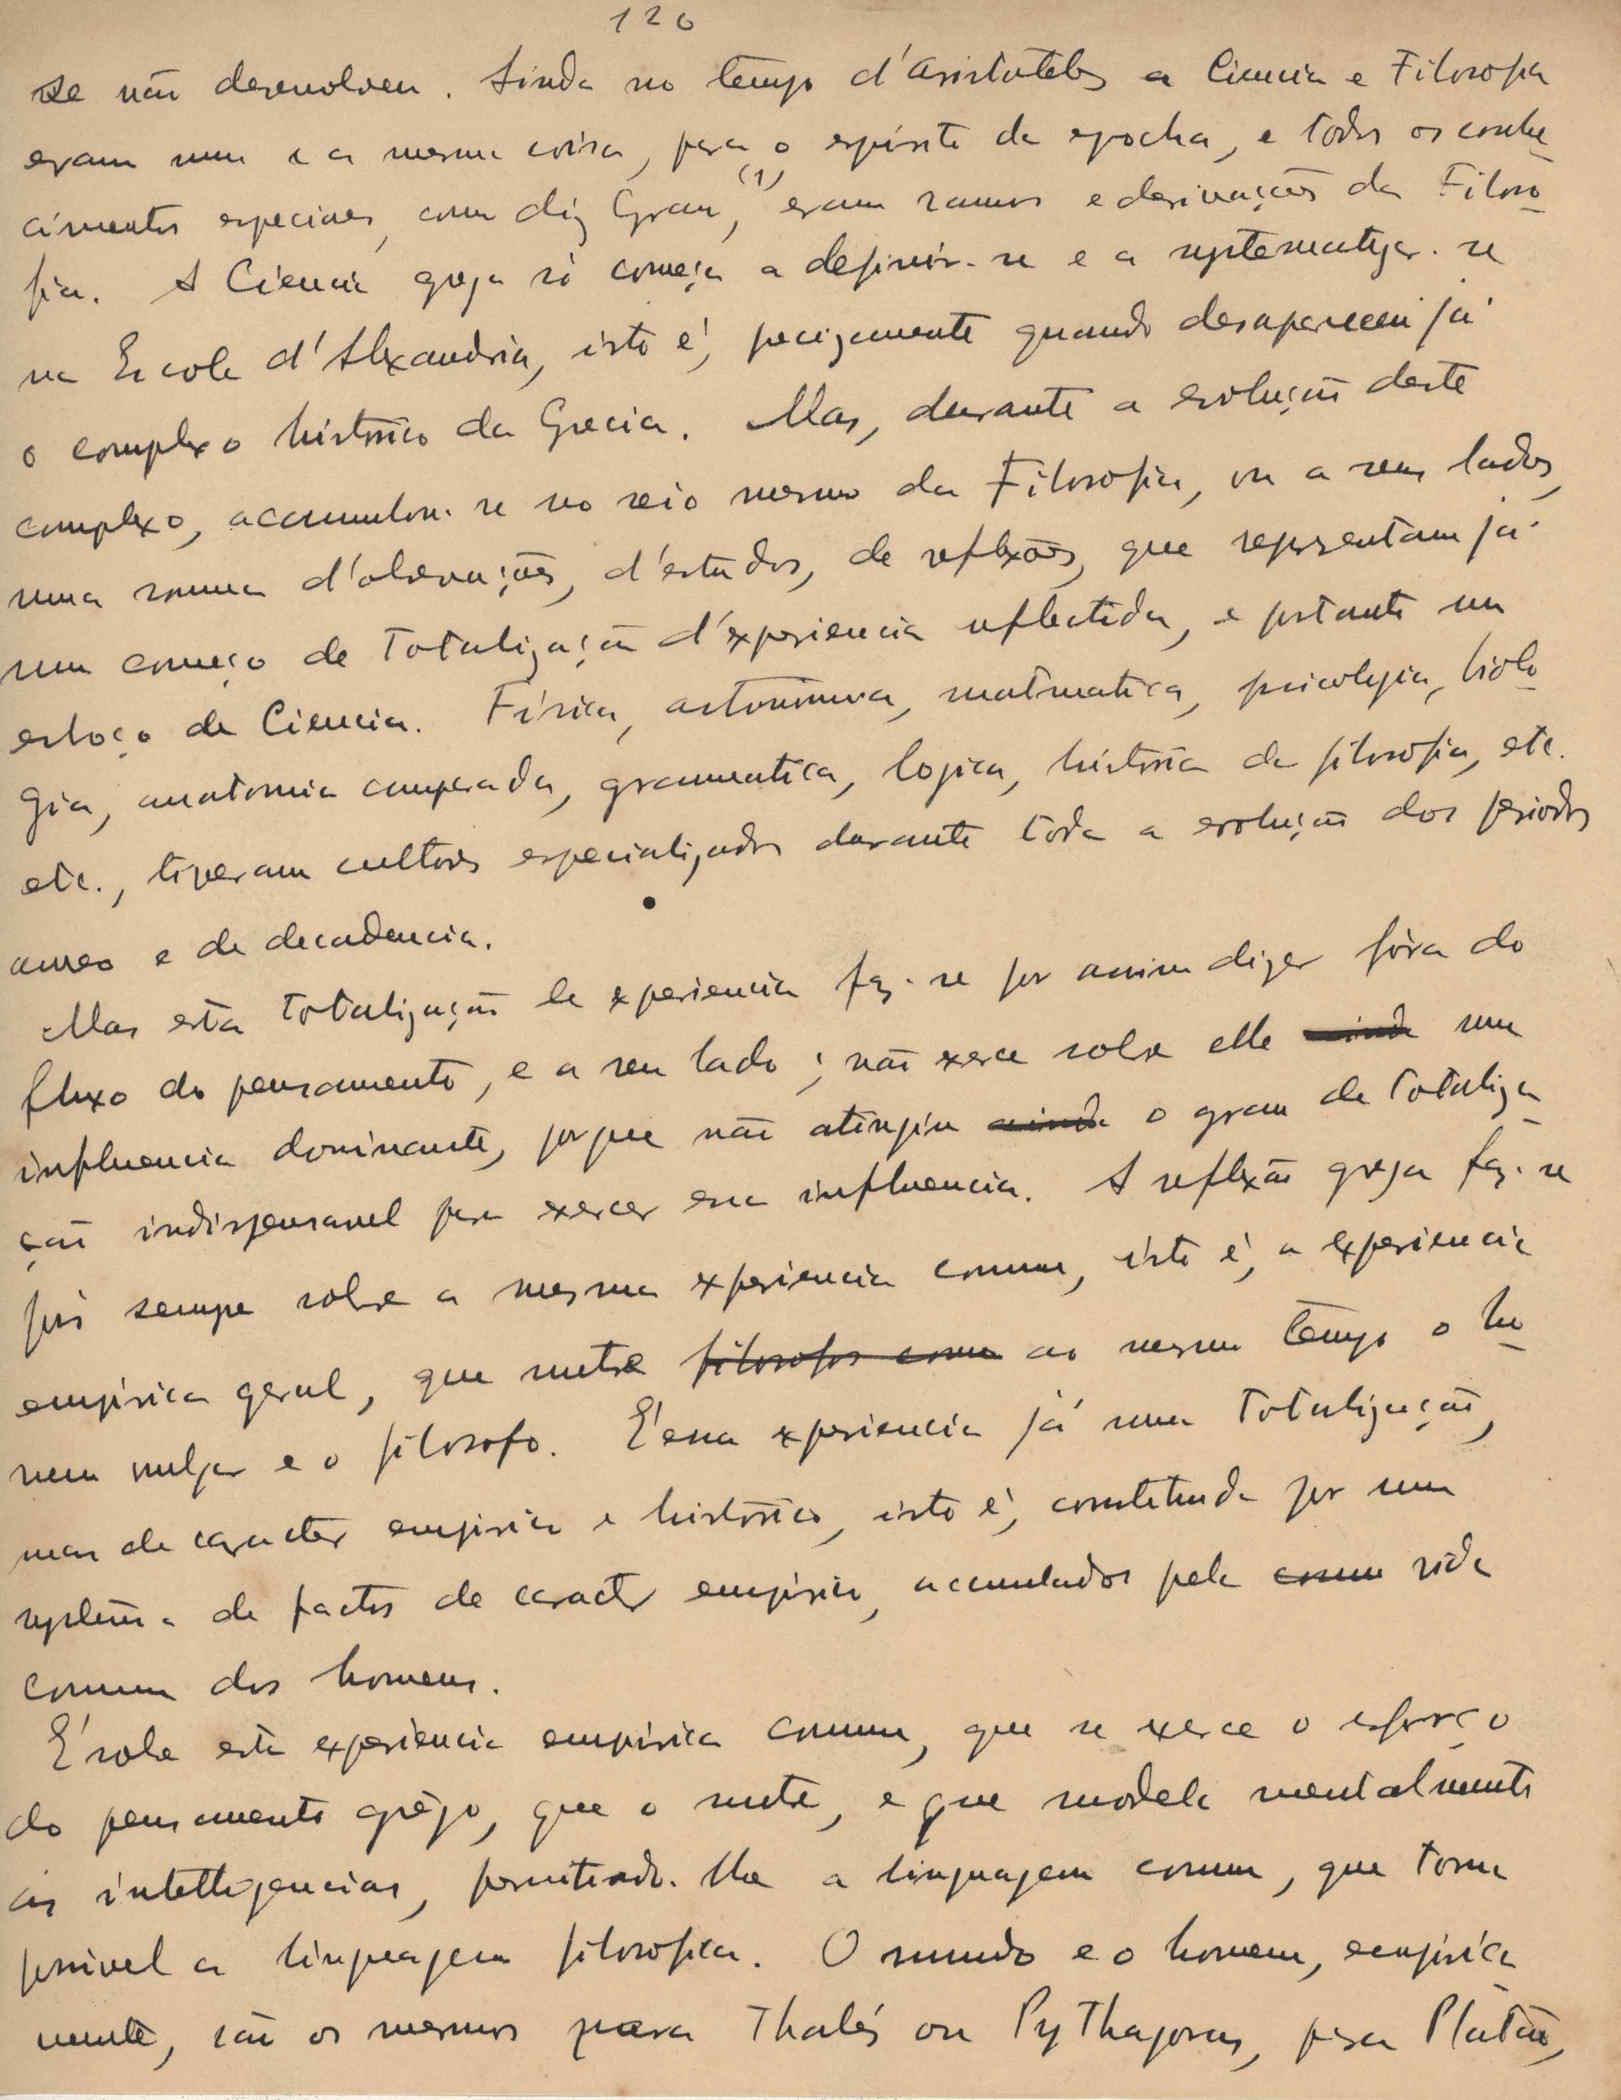 126
se não desenvolveu. Ainda no tempo d'Aristoteles a Ciencia e Filosofia
eram uma e a mesma coisa, para o espirito da epocha, e todos os conhe
cimentos especiaes, como diz Gran, (1) eram ramos e derivações da Filoso
fia. A Ciencia grega só começa a definir-se e a systematizar-se
na Escola d'Alexandria, isto é, precizamente quando desapareceu já
o complexo historico da Grecia. Mas, durante a evolução deste
complexo, accumulou-se no seio mesmo da Filosofia, ou a seu lado,
uma somma d'observações, d'estudos, de reflexões, que representam já
um começo de totalização d'experiencia reflectida, e portanto um
esboço de Ciencia. Física, astronomia, matematica, psicologia, biolo
gia, anatomia comparada, grammatica, logica, historia da filosofia, etc.
etc., tiveram cultores especializados durante toda a evolução dos periodos
aureo e de decadencia.
Mas esta totalização de experiencia faz-se por assim dizer fóra do
fluxo do pensamento, e a seu lado; não exerce sobre elle ainda uma
influencia dominante, porque não atingiu ainda o grau de totaliza
ção indispensavel para exercer essa influencia. A reflexão grega faz-se
pois sempre sobre a mesma experiencia comum, isto é, a experiencia
empirica geral, que nutre filosofos como ao mesmo tempo o ho
mem vulgar e o filosofo. É essa experiencia já uma totalização,
mas de caracter empirico e historico, isto é, constituida por um
systema de factos de caracter empirico, accumulados pela comum vida
comum dos homens.
É sobre esta experiencia empirica comum, que se exerce o esforço
do pensamento grêgo, que o nutre, e que modela mentalmente
as intelligencias, permitindo-lhe a linguagem comum, que torna
possivel a linguagem filosofica. O mundo e o homem, empirica
mente, são os mesmos para Thalés ou Pythagoras, para Platão,